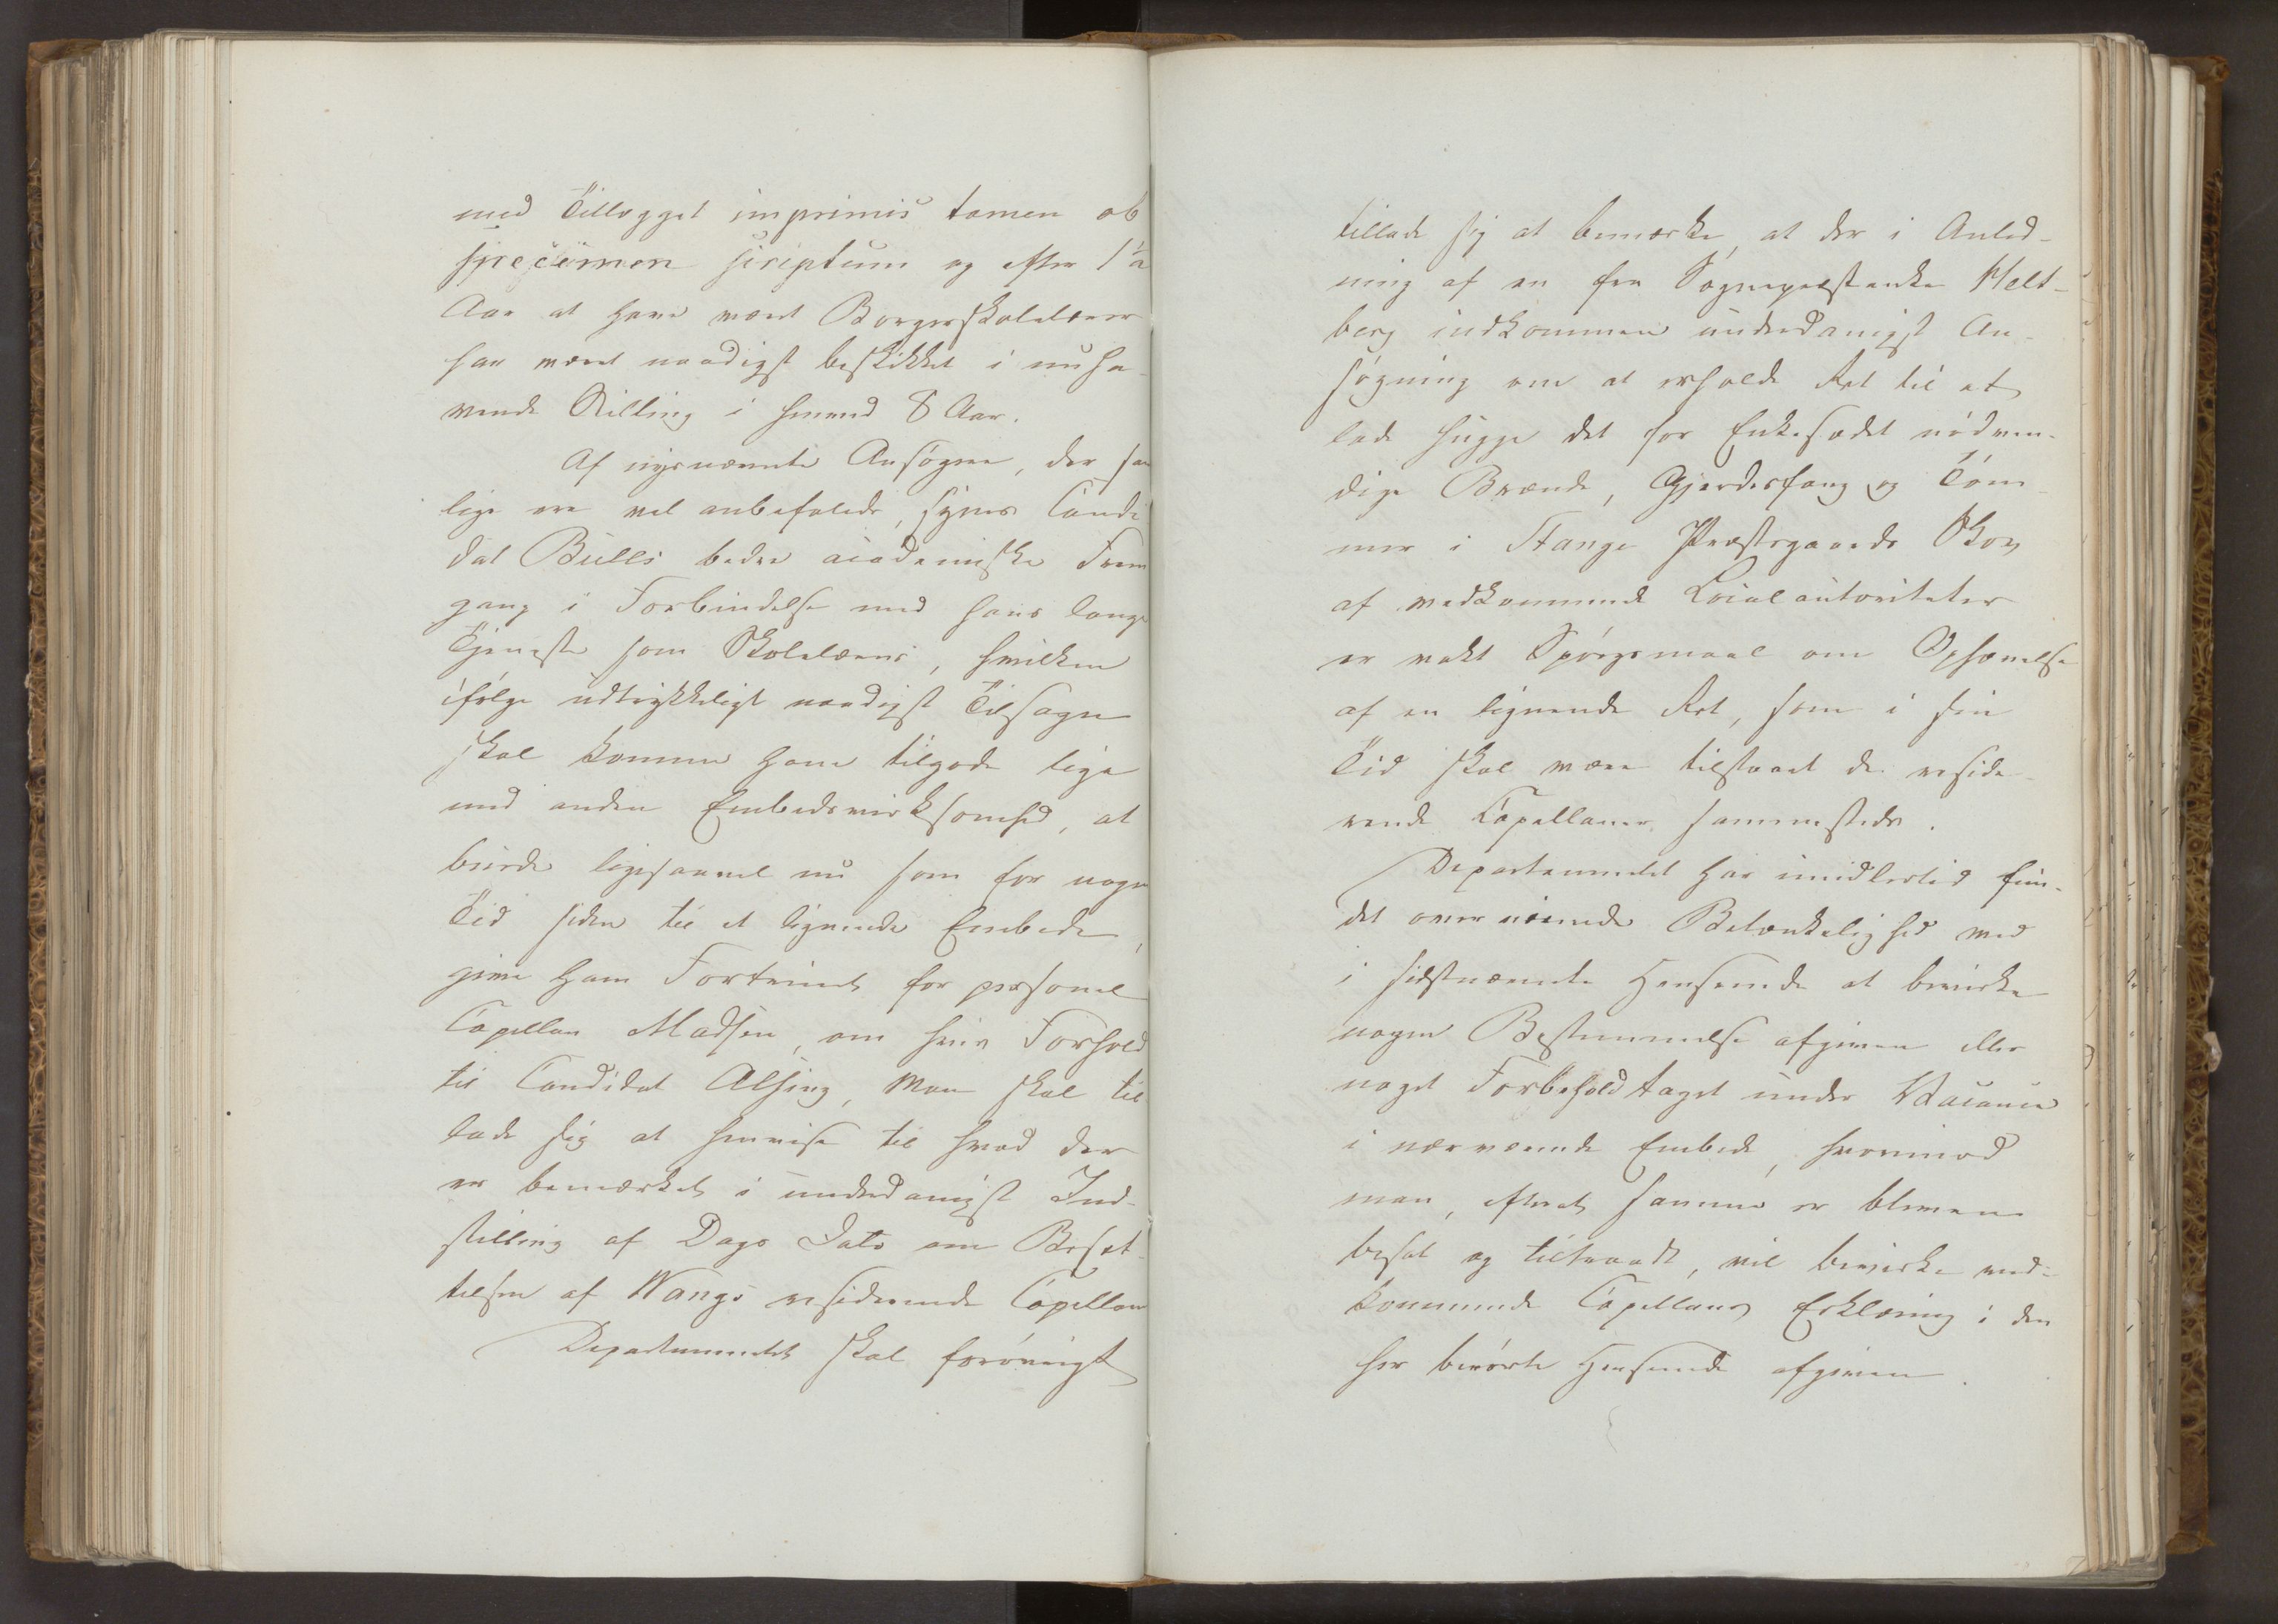 med Tillægget imprimis tamen ob
specimen scriptum og efter 1½
Aar at have været Borgerskolelærer
har været naadigst beskikket i nuha-
vende Stilling i henved 8 Aar.
Af nysnævnte Ansøgere, der sam
lige ere vel anbefalede, synes Candi
dat Bulls bedre academiske Frem
gang i Forbindelse med hans lange
Tjeneste som Skolelærer, hvilken
ifølge udtrykkeligt naadigst Tilsagn
skal komme ham tilgode lige
med anden Embedsvirksomhed, at
burde ligesaavel nu som for nogen
Tid siden til et lignende Embede,
give ham Fortrinet for personel
Capellan Madsen, om hvis Forhold
til Candidat Alsing, man skal til
lade sig at henvise til hvad der
er bemærket i underdanigst Ind-
stilling af Dags Dato om Besæt-
telsen af Wangs residerende Capellani
Departementet skal forøvrigt
tillade sig at bemærke, at der i Anled-
ning af en fra Sognepræstenke Helt-
berg indkommen underdanigst An-
søgning om at erholde Ret til at
lade hugge det for Enkesædet nødven-
dige Brænde, Gjerdesfang og Tøm-
mer i Stange Præstegaards Skov
af vedkommende Localautoriteter
er vakt Spørgsmaal om Ophævelse
af en lignende Ret, som i sin
Tid skal være tilstaaet de reside-
rende Capellaner sammesteds.
Departementet har imidlertid fun-
det overveiende Betænkelighed ved
i sidstnævnte Henseende at bevirke
nogen Bestemmelse afgiven eller
noget Forbehold taget under Vacance
i nærværende Embede, hvorimod
man, efterat samme er bleven
besat og tiltraadt, vil bevirke ved-
kommende Capellans Erklæring i den
her berørte Henseende afgiven.